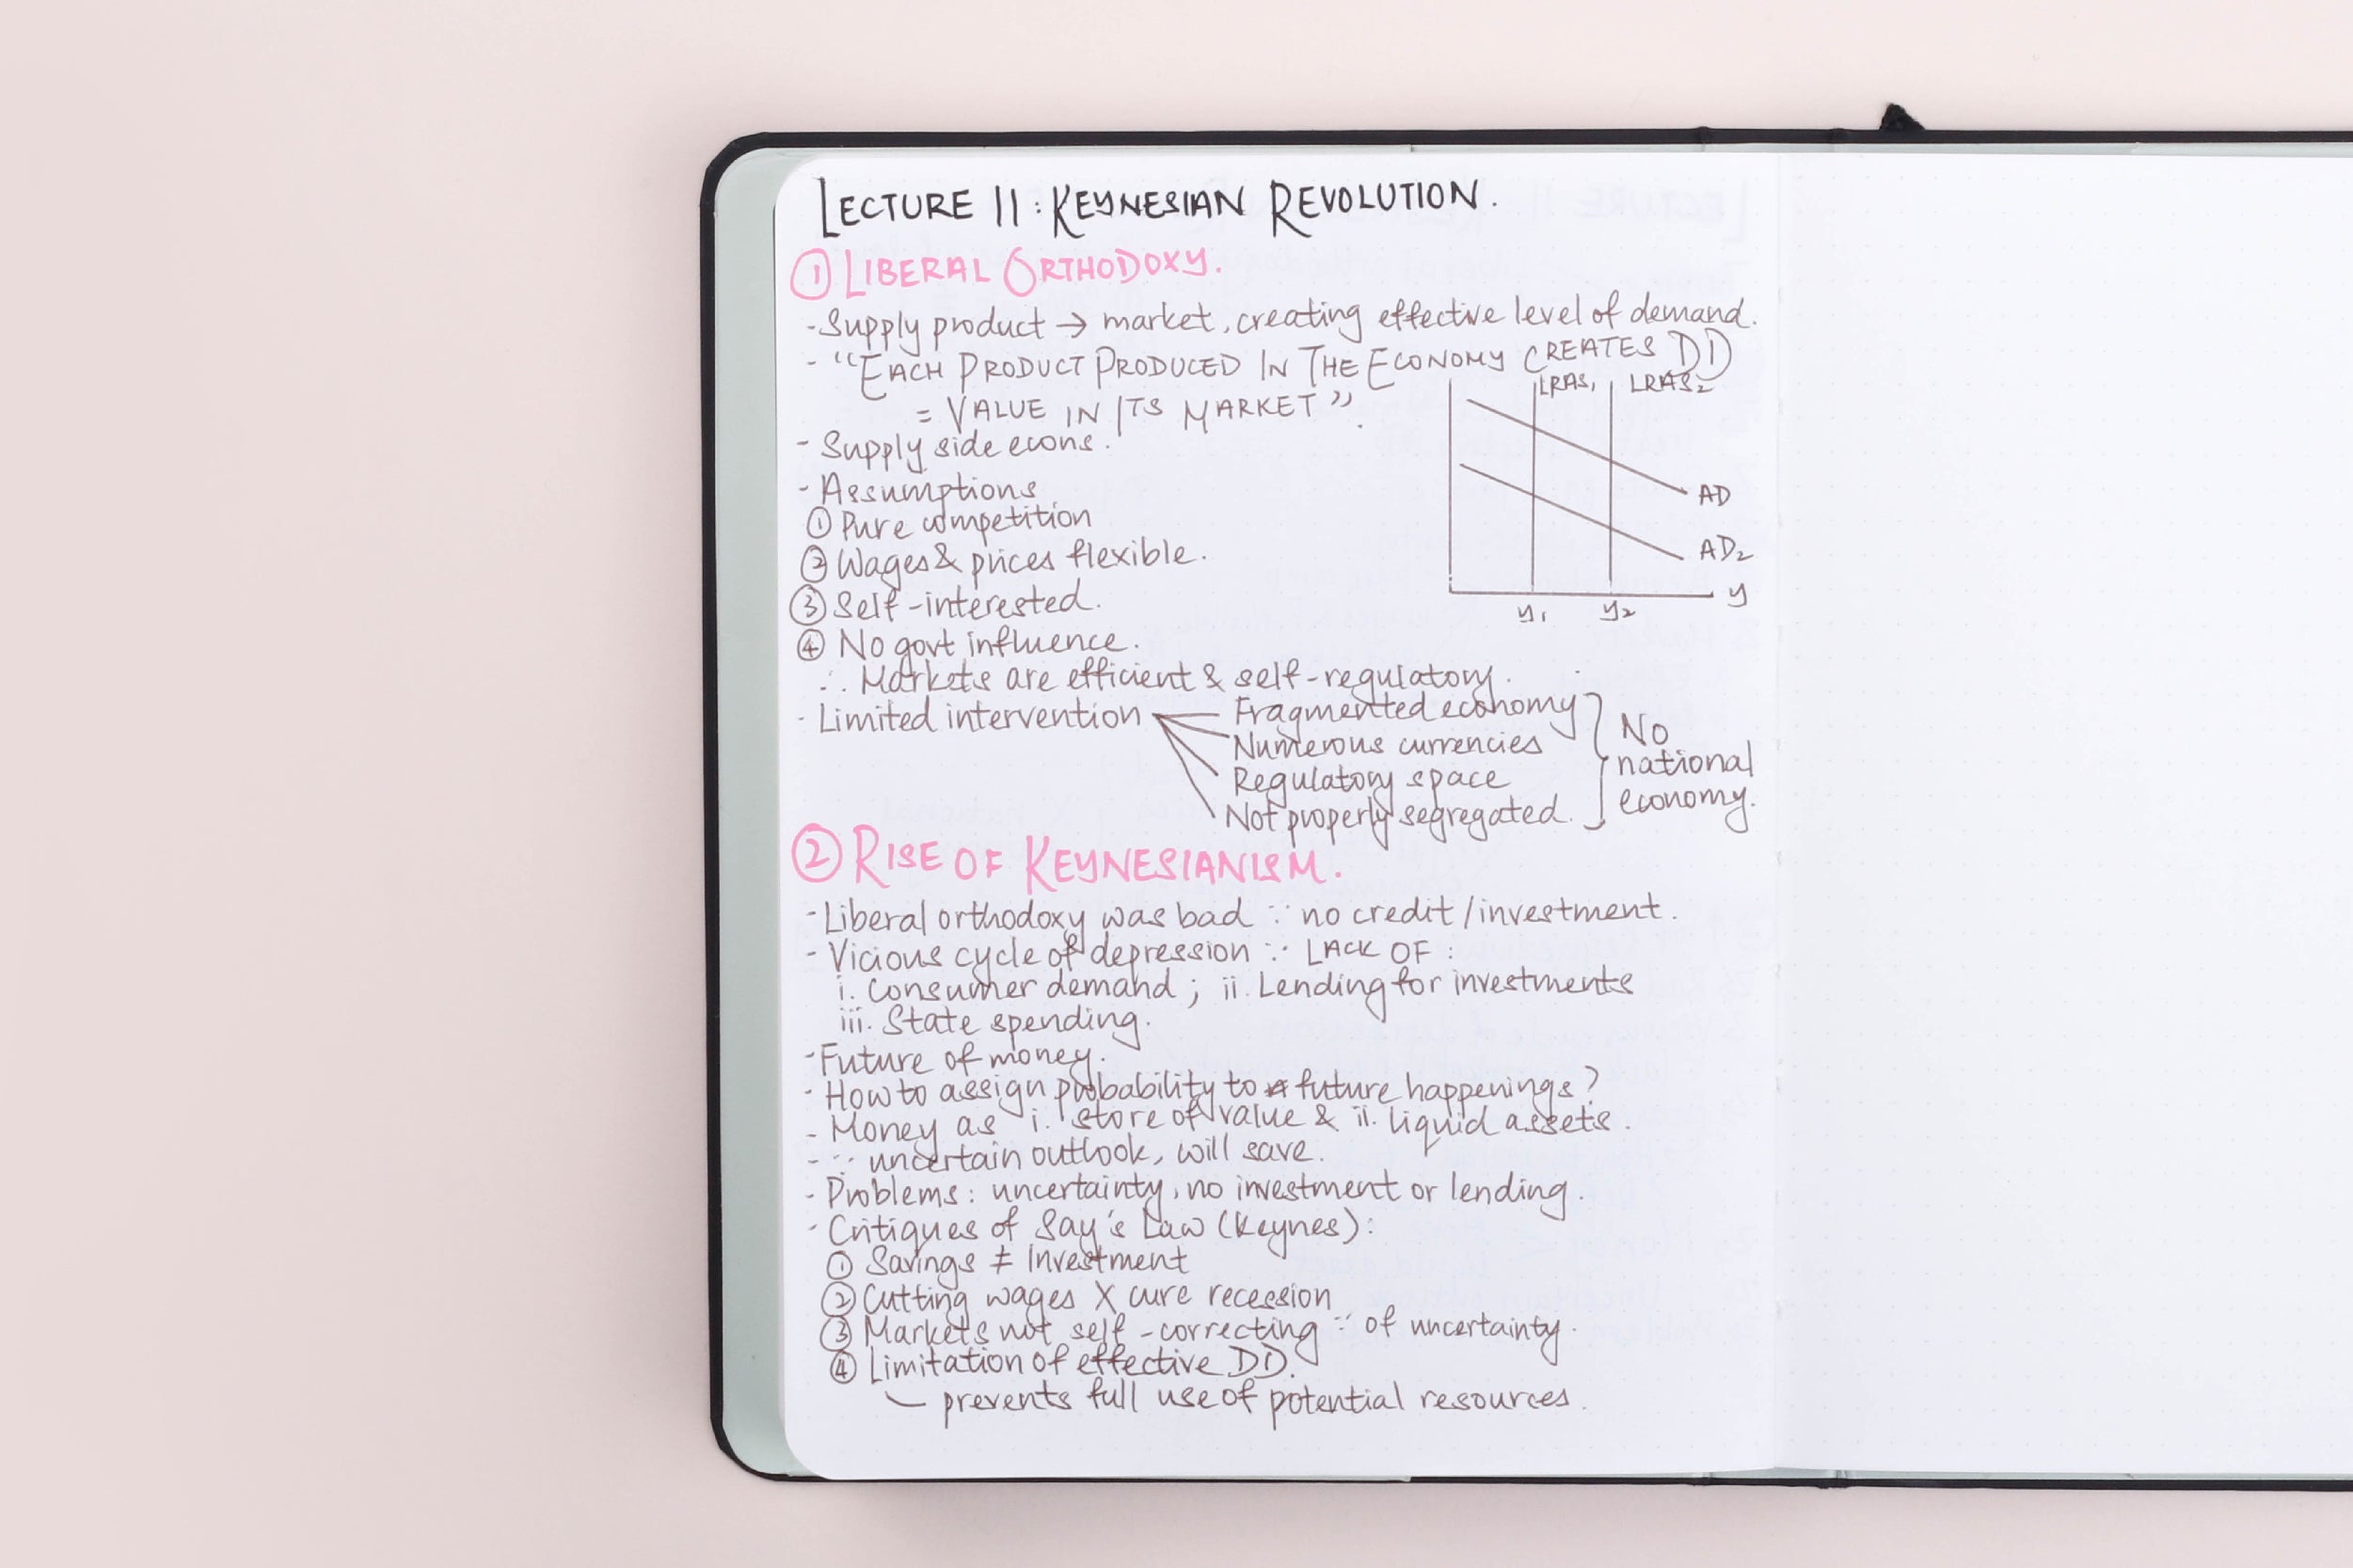 LECTURE 11: KEYNESIAN REVOLUTION.
① LIBERAL ORTHODOXY.
- Supply product → market, creating effective level of demand.
- "EACH PRODUCT PRODUCED IN THE ECONOMY CREATES DD
= VALUE IN ITS MARKET".
LRAS₁ LRAS₂
- Supply side econs.
- Assumptions
AD
① Pure competition
② Wages & prices flexible.
AD₂
③ Self-interested.
y
y₁ y₂
④ No govt influence.
∴ Markets are efficient & self-regulatory.
- Limited intervention
Fragmented economy
Numerous currencies
Regulatory space
Not properly segregated.
No
national
economy.
② RISE OF KEYNESIANISM.
- Liberal orthodoxy was bad ∵ no credit/investment.
- Vicious cycle of depression ∵ LACK OF:
i. Consumer demand; ii. Lending for investments
iii. State spending.
- Future of money.
- How to assign probability to future happenings?
- Money as i. store of value & ii. liquid assets.
- ∵ uncertain outlook, will save.
- Problems: uncertainty, no investment or lending.
- Critiques of Say's Law (Keynes):
① Savings ≠ Investment
② Cutting wages X cure recession
③ Markets not self-correcting ∵ of uncertainty.
④ Limitation of effective DD.
prevents full use of potential resources.